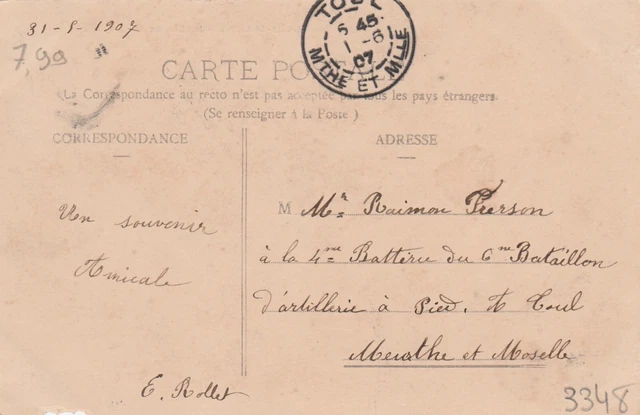 31-5-1907
7,90
TOUL
6 45
1 - 6
07
MTHE ET MLLE
CARTE POSTALE
La Correspondance au recto n'est pas acceptée par tous les pays étrangers
(Se renseigner à la Poste)
CORRESPONDANCE
ADRESSE
Un souvenir
Amicale
E. Rollet
M Mr Raimon Pierson
à la 4me Batterie du 6me Bataillon
d'artillerie à Pied. A Toul
Meurthe et Moselle
3348